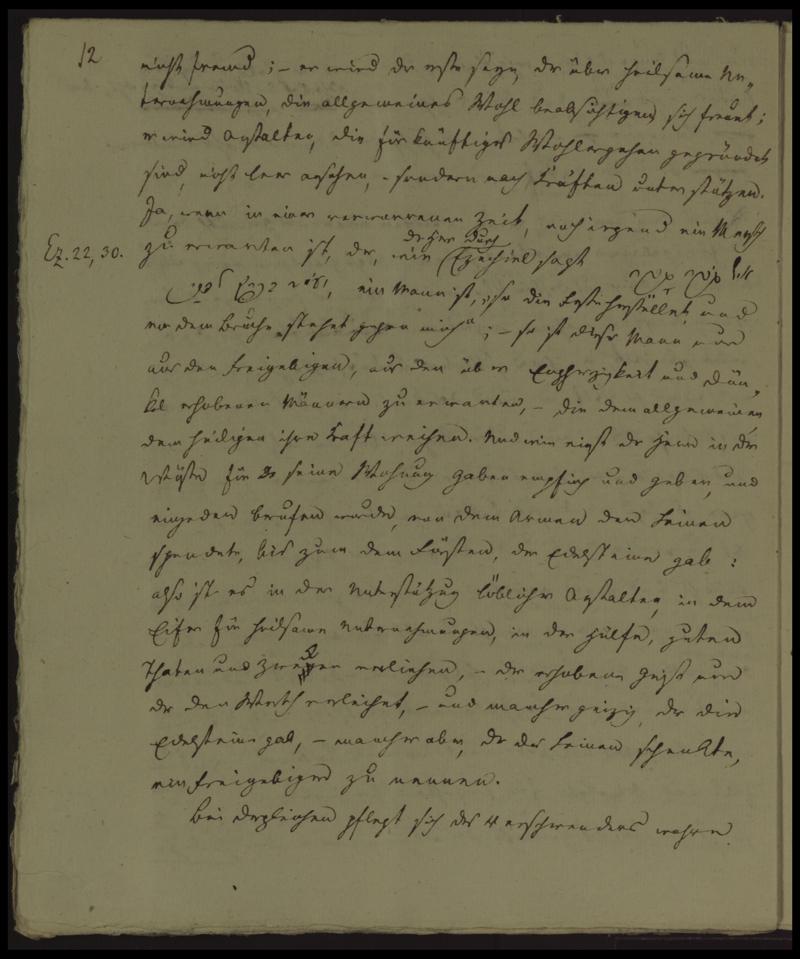 12
nicht fremd; – er wird der erste seyn, der über heilsame Un„
ternehmungen, die allgemeines Wohl beabsichtigen, sich freuet;
er wird Anstalten, die für künftiges Wohlergehen gegründet
sind, nicht leer ansehen, – sondern nach Kräften unterstützen.
Ja, wenn in einer verworrenen Zeit, noch irgend ein Mensch
Ez. 22, 30.
zu erwarten ist, der, wie der Herr durch Ezechiel sagt
ein Mann ist, „so die herstellet, und
vor dem Bruche stehet gegen mich“; – so ist dieser Mann nur
aus den freigebigen, aus den über Engherzigkeit und Dün„
kel erhobenen Männern zu erwarten, – die dem allgemeinen
dem heiligen ihre Kraft weihen. Und wie einst der Herr in der
Wüste für seine Wohnung Gaben empfing und Geber, und
ein jeder berufen wurde, von dem Armen der Leinen
spendete, bis zum dem Fürsten, der Edelsteine gab:
also ist es in der Unterstützung löblicher Anstalten, in dem
Eifer für heilsame Unternehmungen, in der Hülfe, guten
Thaten und Zwecken verliehen, – der erhobene Geist nur
der den Werth verleihet, – und mancher geizig, der die
Edelsteine gab, – mancher aber, der das Leinen schenkte,
ein freigebiger zu nennen.
Bei dergleichen pflegt sich des Verschwenders wahre